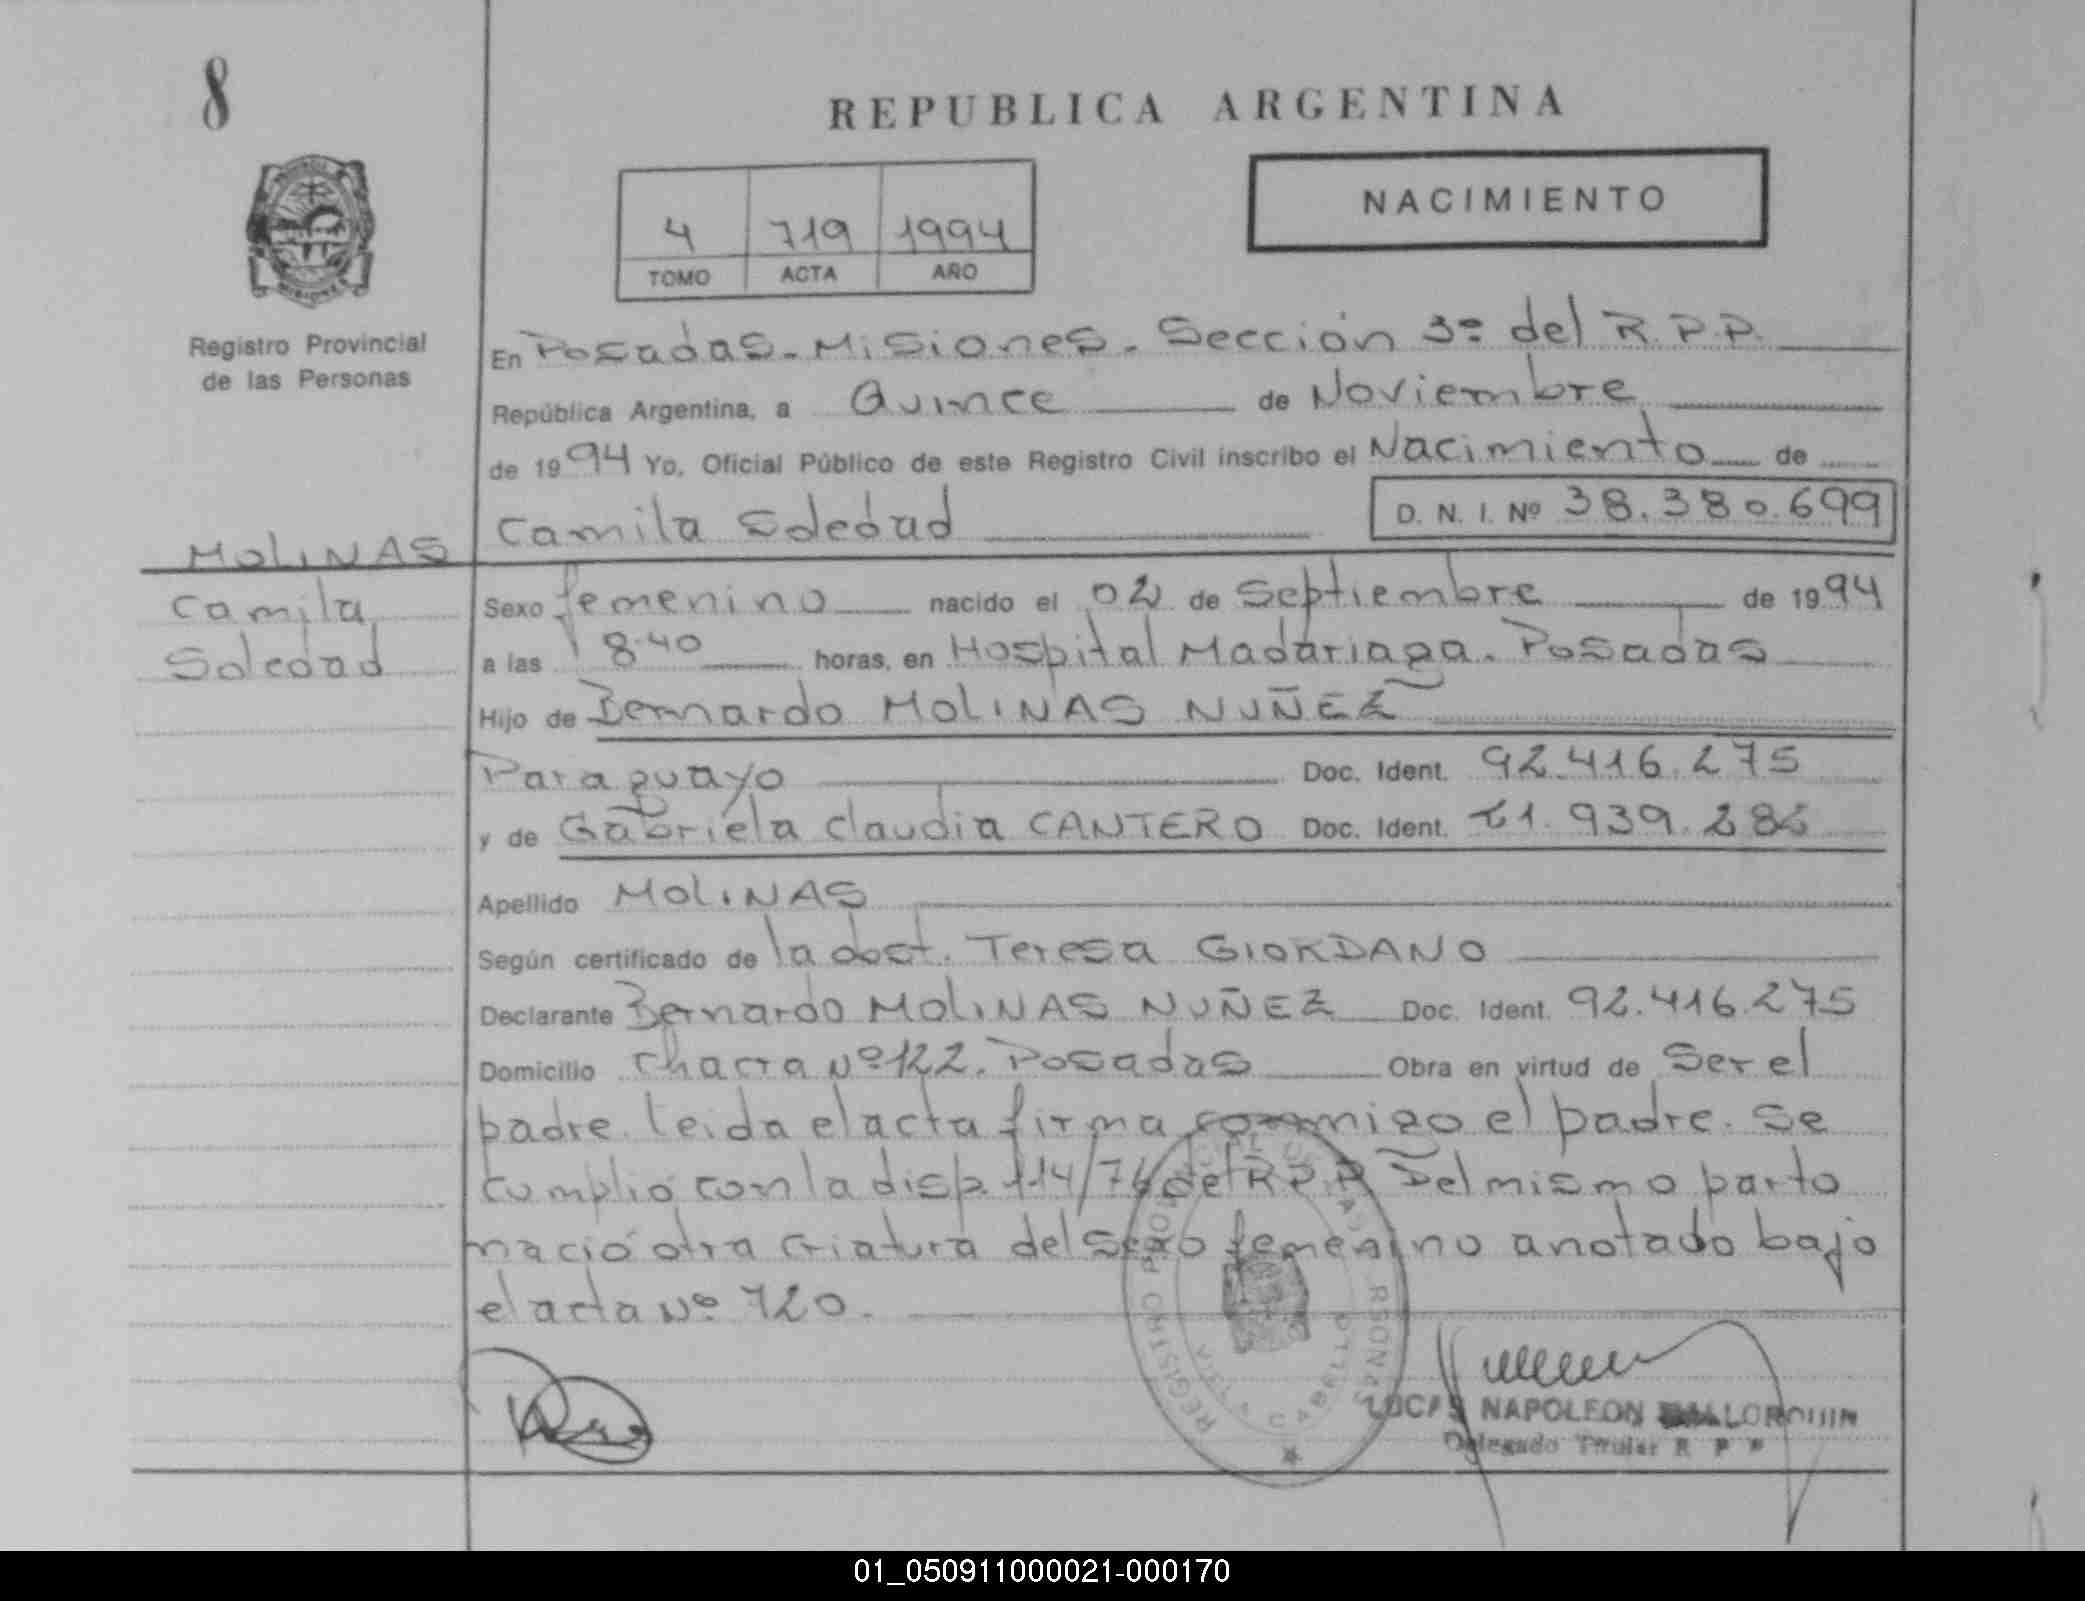 8
REPUBLICA ARGENTINA
NACIMIENTO
4 719 1994
TOMO ACTA AÑO
Registro Provincial
de las Personas
En Posadas - Misiones - Sección 3º del R.P.P.
República Argentina, a Quince de Noviembre
de 1994 Yo, Oficial Público de este Registro Civil inscribo el Nacimiento de
Camila Soledad D. N. I. Nº 38.380.699
MOLINAS
Camila
Soledad
Sexo femenino nacido el 02 de Septiembre de 1994
a las 8·40 horas, en Hospital Madariaga. Posadas
Hijo de Bernardo MOLINAS NUÑEZ
Paraguayo Doc. Ident. 92.416.275
y de Gabriela Claudia CANTERO Doc. Ident. 21.939.
Apellido MOLINAS
Según certificado de la obst. Teresa GIORDANO
Declarante Bernardo MOLINAS NUÑEZ Doc. Ident. 92.416.275
Domicilio Chacra Nº 122. Posadas Obra en virtud de Ser el
padre. leida el acta firma conmigo el padre. Se
cumplió con la disp. 114/76 del R.P.P. Del mismo parto
nació otra criatura del sexo femenino anotado bajo
el acta Nº 720.
REGISTRO PROVINCIAL DE LAS PERSONAS
CABELLO
LUCAS NAPOLEON
Delegado Titular R P P
01_050911000021-000170